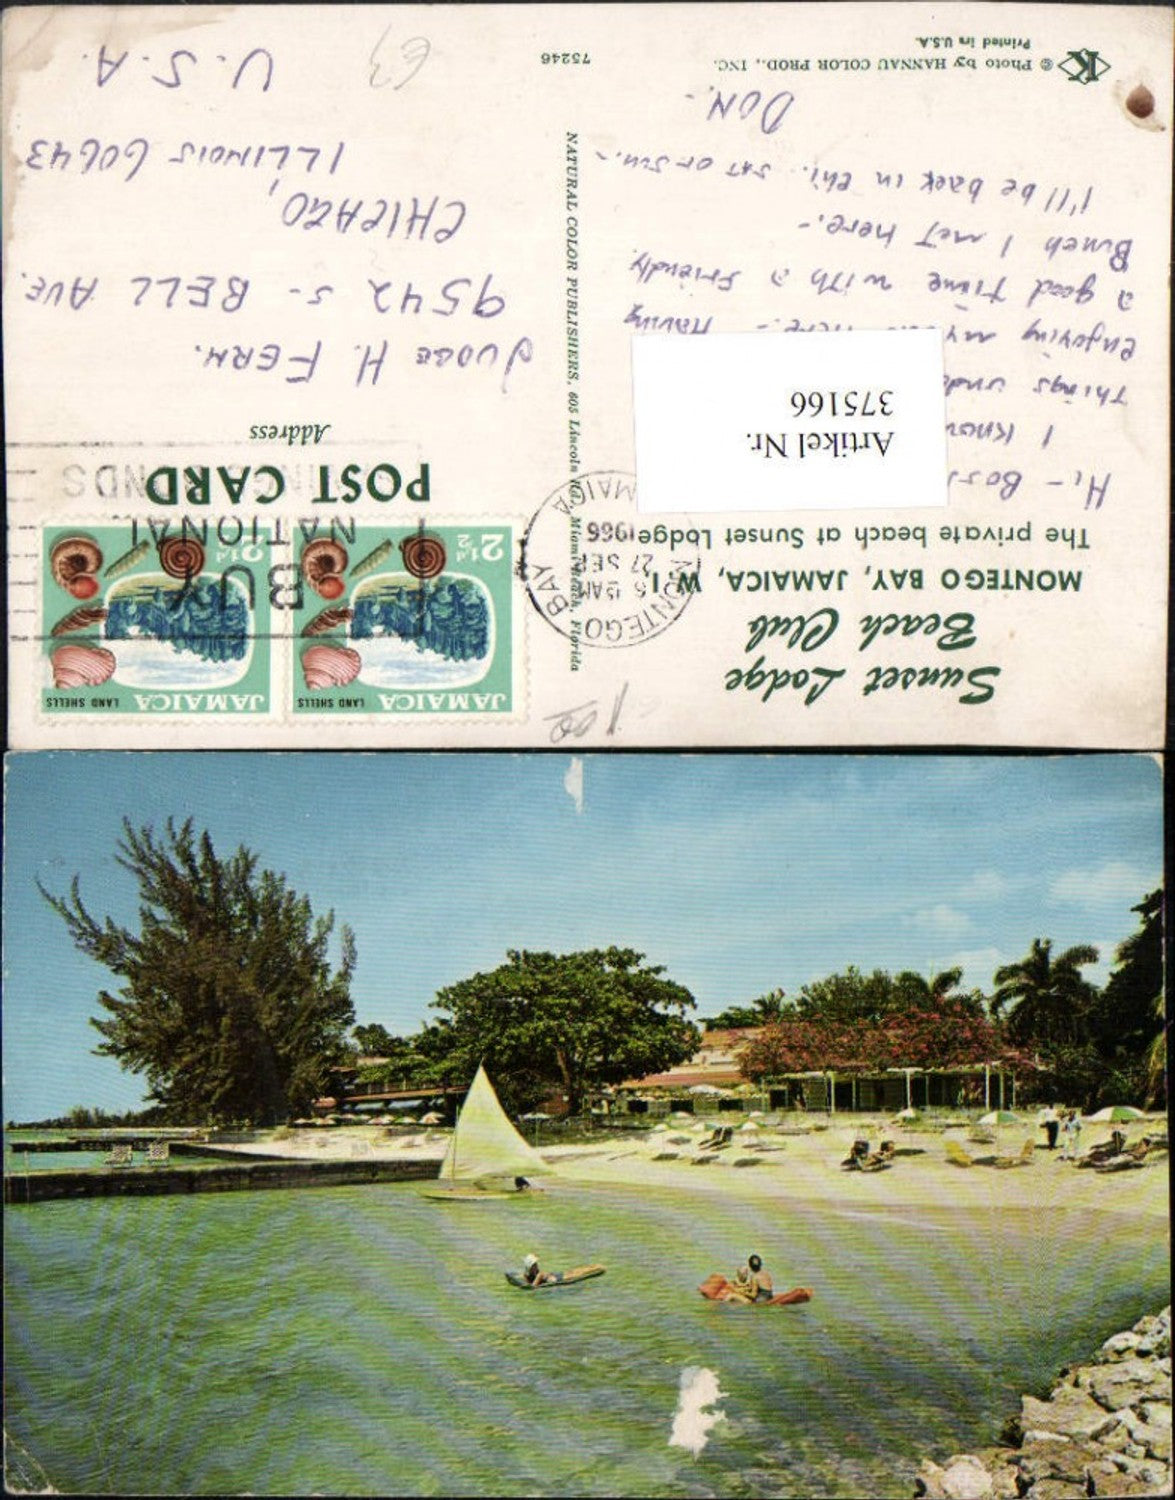 Sunset Lodge
Beach Club
MONTEGO BAY, JAMAICA, W.I.
The private beach at Sunset Lodge
Hi - Boss
I know
Things unde
enjoying my here - Having
a good time with a friendly
Bunch I met here. -
I'll be back in chi. sat or sun. -
DON. -
© Photo by HANNAU COLOR PROD., INC.
Printed in U.S.A.
K
Artikel Nr.
375166
NATURAL COLOR PUBLISHERS, 605 Lincoln Rd., Miami Beach, Florida
75246
MONTEGO BAY
JAMAICA
AM
27 SEP
1966
JAMAICA
LAND SHELLS
2½d
JAMAICA
LAND SHELLS
2½d
BUY
NATIONAL
SAVINGS BONDS
POST CARD
Address
JUDGE H. FERN.
9542 S - BELL AVE.
CHICAGO,
ILLINOIS 60643
U.S.A.